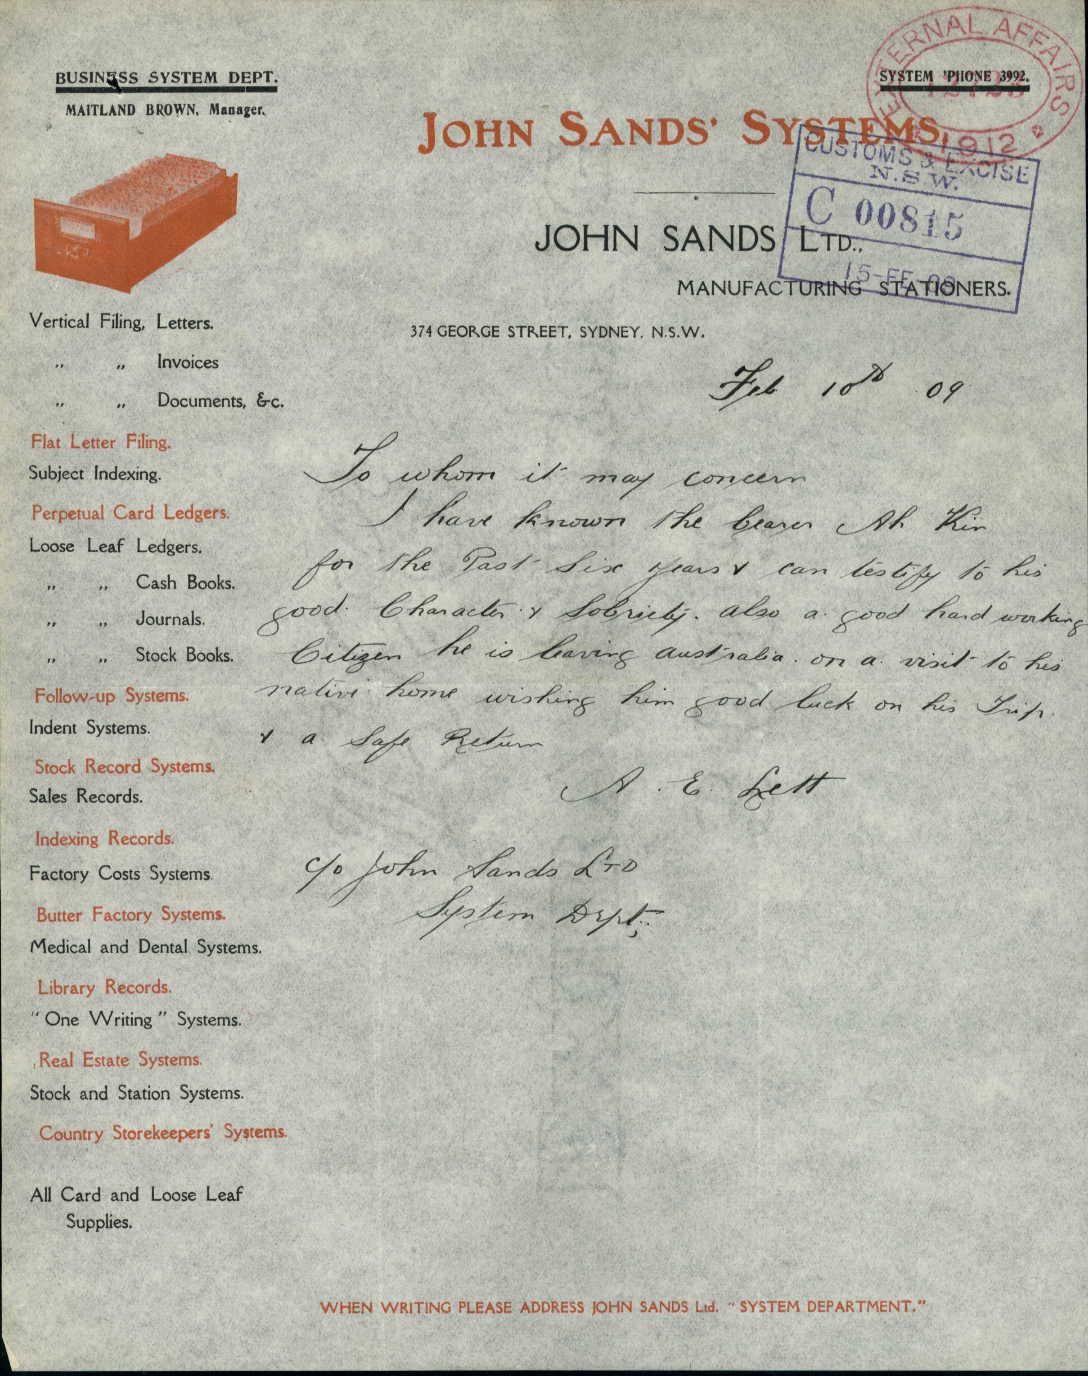 BUSINESS SYSTEM DEPT.
MAITLAND BROWN, Manager.
SYSTEM 'PHONE 3992.
EXTERNAL AFFAIRS
1912
JOHN SANDS' SYSTEMS.
CUSTOMS & EXCISE
N.S.W.
C 00815
15-FE-09
JOHN SANDS LTD.,
MANUFACTURING STATIONERS.
374 GEORGE STREET, SYDNEY. N.S.W.
Vertical Filing, Letters.
„ „ Invoices
„ „ Documents, &c.
Flat Letter Filing.
Subject Indexing.
Perpetual Card Ledgers.
Loose Leaf Ledgers.
„ „ Cash Books.
„ „ Journals.
„ „ Stock Books.
Follow-up Systems.
Indent Systems.
Stock Record Systems.
Sales Records.
Indexing Records.
Factory Costs Systems.
Butter Factory Systems.
Medical and Dental Systems.
Library Records.
"One Writing" Systems.
Real Estate Systems.
Stock and Station Systems.
Country Storekeepers' Systems.
All Card and Loose Leaf
Supplies.
Feb 10th 09
To whom it may concern
I have known the bearer Ah Kin
for the Past Six years & can testify to his
good Character & Sobriety. also a good hard working
Citizen he is leaving australia. on a visit to his
native home wishing him good luck on his Trip
& a Safe Return
A. E. Lett
c/o John Sands LTD
System Dept.
WHEN WRITING PLEASE ADDRESS JOHN SANDS Ltd. "SYSTEM DEPARTMENT."